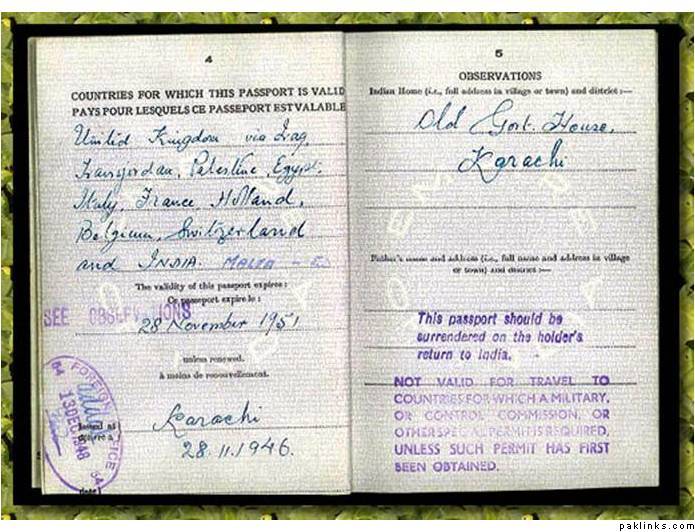 4
COUNTRIES FOR WHICH THIS PASSPORT IS VALID
PAYS POUR LESQUELS CE PASSEPORT EST VALABLE
United Kingdom via Iraq,
Transjordan, Palestine, Egypt,
Italy, France, Holland,
Belgium, Switzerland
and INDIA. MALTA
The validity of this passport expires:
Ce passeport expire le:
SEE OBSERVATIONS
28 November 1951
unless renewed.
à moins de renouvellement.
FOREIGN OFFICE
64
13 DEC 1946
64
Issued at
Karachi
28.11.1946.
5
OBSERVATIONS
Indian Home (i.e., full address in village or town) and district:—
Old Govt. House,
Karachi
Father's name and address (i.e., full name and address in village
or town) and district:—
This passport should be
surrendered on the holder's
return to India.
NOT VALID FOR TRAVEL TO
COUNTRIES FOR WHICH A MILITARY,
OR CONTROL COMMISSION, OR
OTHER SPECIAL PERMIT IS REQUIRED,
UNLESS SUCH PERMIT HAS FIRST
BEEN OBTAINED.
paklinks.com